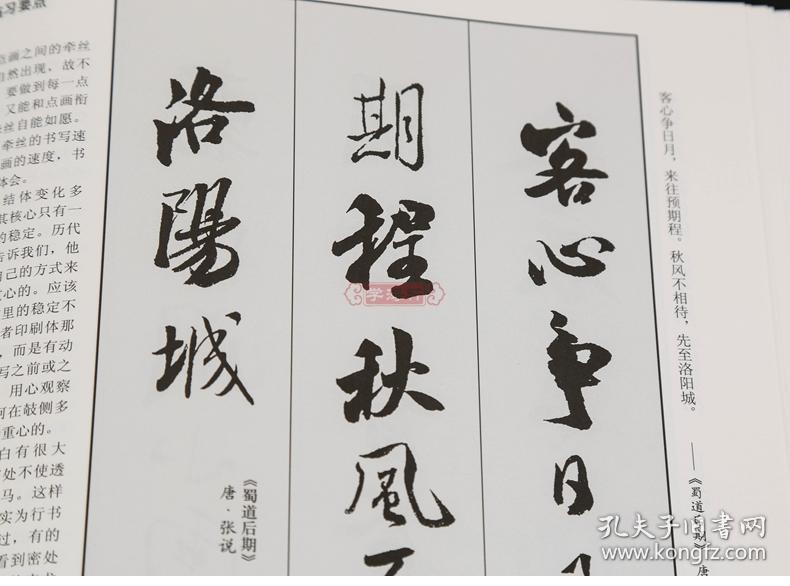 习要点
客心争日月，来往预期程。秋风不相待，先至洛阳城。
——《蜀道后期》唐
客心争日
期程秋風
洛陽城
《蜀道后期》
唐·张说
点画之间的牵丝
自然出现，故不
要做到每一点
又能和点画衔
丝自能如愿。
牵丝的书写速
画的速度，书
体会。
结体变化多
其核心只有一
的稳定。历代
告诉我们，他
自己的方式来
重心的。应该
里的稳定不
者印刷体那
，而是有动
写之前或之
用心观察
何在攲侧多
重心的。
白有很大
处不使透
马。这样
实为行书
过，有的
看到密处
学海轩
孔夫子旧书网
www.kongfz.com